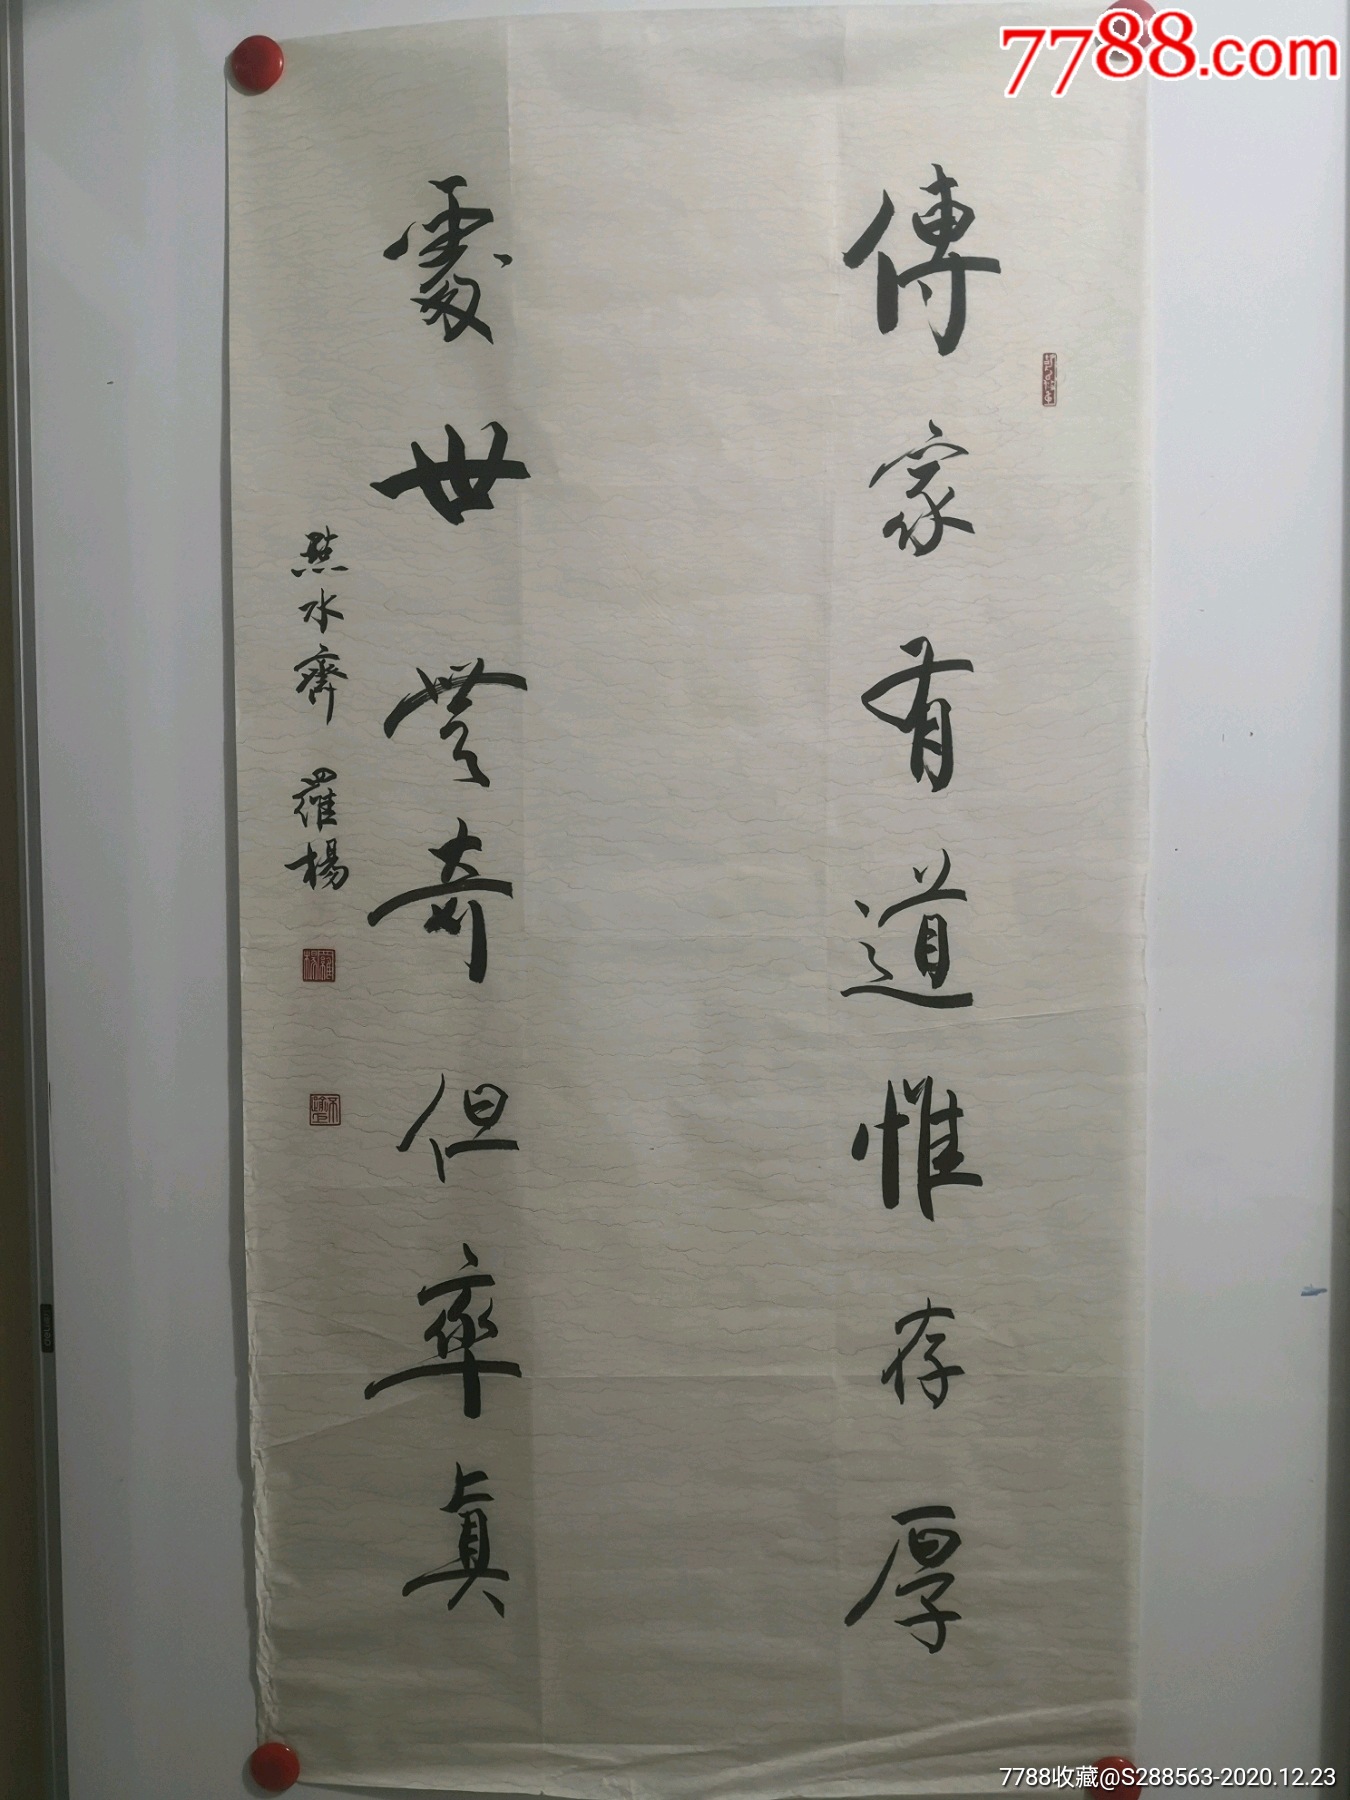 7788.com
傳家有道惟存厚
處世無奇但率眞
點水齋 羅楊
羅楊
7788收藏@S288563-2020.12.23